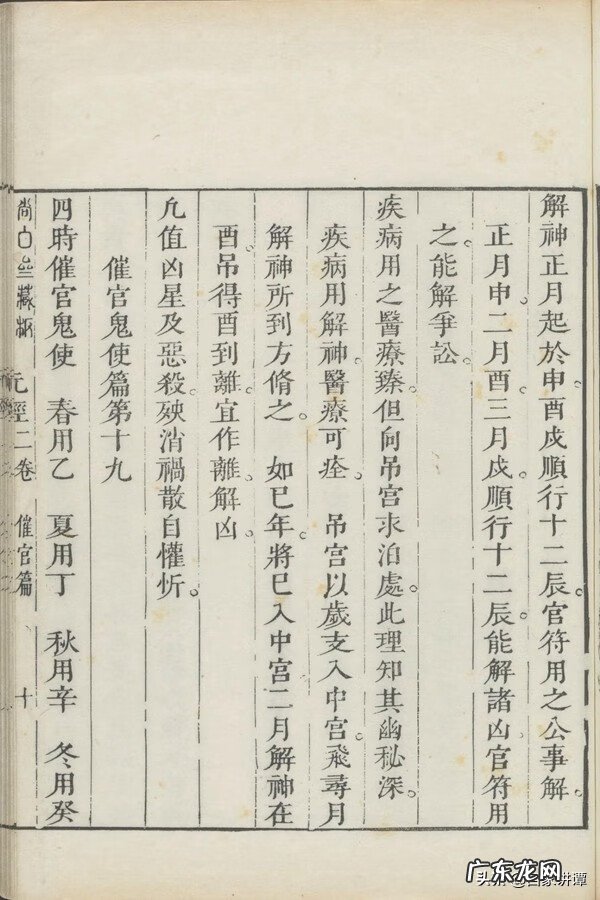 解神正月起於申酉戍順行十二辰官符用之公事解
正月申二月酉三月戍順行十二辰能解諸凶官符用
之能解爭訟
疾病用之醫療臻但向吊宮求泊處此理知其幽秘深
疾病用解神醫療可痊 吊宮以歲支入中宮飛尋月
解神所到方脩之 如巳年將巳入中宮二月解神在
酉吊得酉到離宜作離解凶
凢值凶星及惡殺殃消禍散自懽忻
催官鬼使篇第十九
四時催官鬼使 春用乙 夏用丁 秋用辛 冬用癸
尚白齋藏板 元經二卷 催官篇 十
广东龙网
头条 @百家讲谭